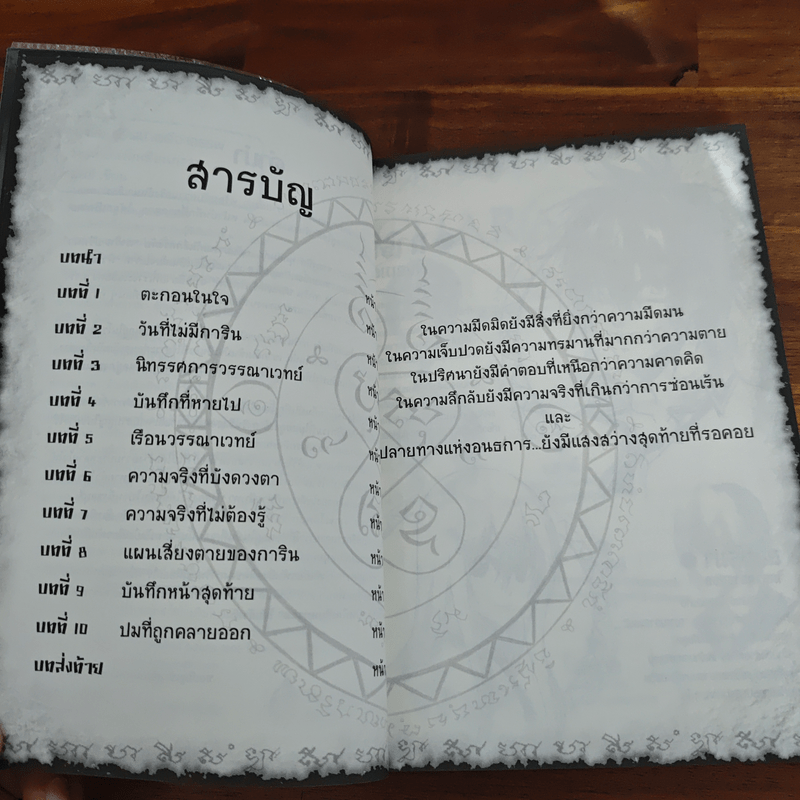 สารบัญ
บทนำ
บทที่ 1 ตะกอนในใจ หน้า
บทที่ 2 วันที่ไม่มีการิน หน้า
บทที่ 3 นิทรรศการวรรณาเวทย์ หน้า
บทที่ 4 บันทึกที่หายไป หน้า
บทที่ 5 เรือนวรรณาเวทย์ หน้า
บทที่ 6 ความจริงที่บังดวงตา หน้า
บทที่ 7 ความจริงที่ไม่ต้องรู้ หน้า
บทที่ 8 แผนเสี่ยงตายของการิน หน้า
บทที่ 9 บันทึกหน้าสุดท้าย หน้า
บทที่ 10 ปมที่ถูกคลายออก หน้า
บทส่งท้าย หน้า
ในความมืดมิดยังมีสิ่งที่ยิ่งกว่าความมืดมน
ในความเจ็บปวดยังมีความทรมานที่มากกว่าความตาย
ในปริศนายังมีคำตอบที่เหนือกว่าความคาดคิด
ในความลึกลับยังมีความจริงที่เกินกว่าการซ่อนเร้น
และ
ปลายทางแห่งอนธการ...ยังมีแสงสว่างสุดท้ายที่รอคอย